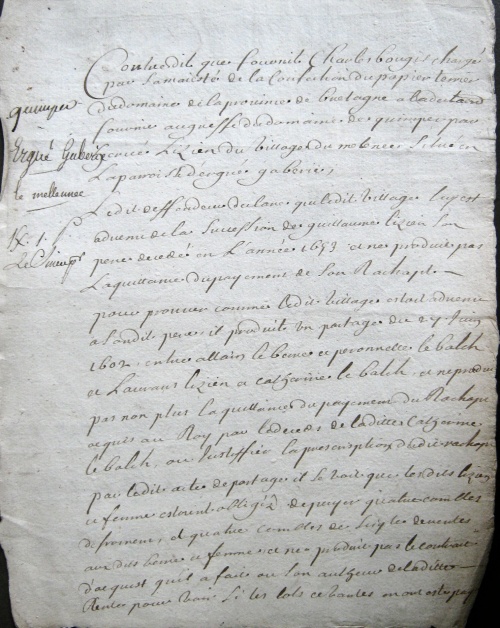 Contredits que fournit Charles bougis chargé
par sa maiesté de la Confection du papier terrier
du domaine de la province de bretagne a la declaration
fournie au greffe du domaine de quimper par
hervé Lizien du village du melenec situé en
La parroisse d'ergué gaberic
quimper
Ergué Gaberic
le mellennec
Ledit deffendeur declare que ledit village luy est
advenu de la succession de guillaume lizien son
pere decedé en L'année 1653 et ne produit pas
La quittance du payement de son Rachapt
pour prouver comme ledit village estoit advenu
a son dit pere il produit un partage du 27 Juin
1602 entre allain le benec et peronnelle le balch
et Laurans lizien et catherine le balch, et ne produit
pas non plus la quittance du payement du Rachapt
acquis au Roy par le deceds de laditte Catherine
le balch, ou Justiffier la prescription dudit rachapt
par ledit acte de partage il se voit que lesdits lizien
et femme estoient obligez de payer quatre combles
de froment et quatre combles de seigle de rentes
aux dits benec et femme et ne produit pas le contrat
d'acquist qu'il a fait ou son autheur de laditte
Rente pour voir si les lots et ventes en ont esté payé